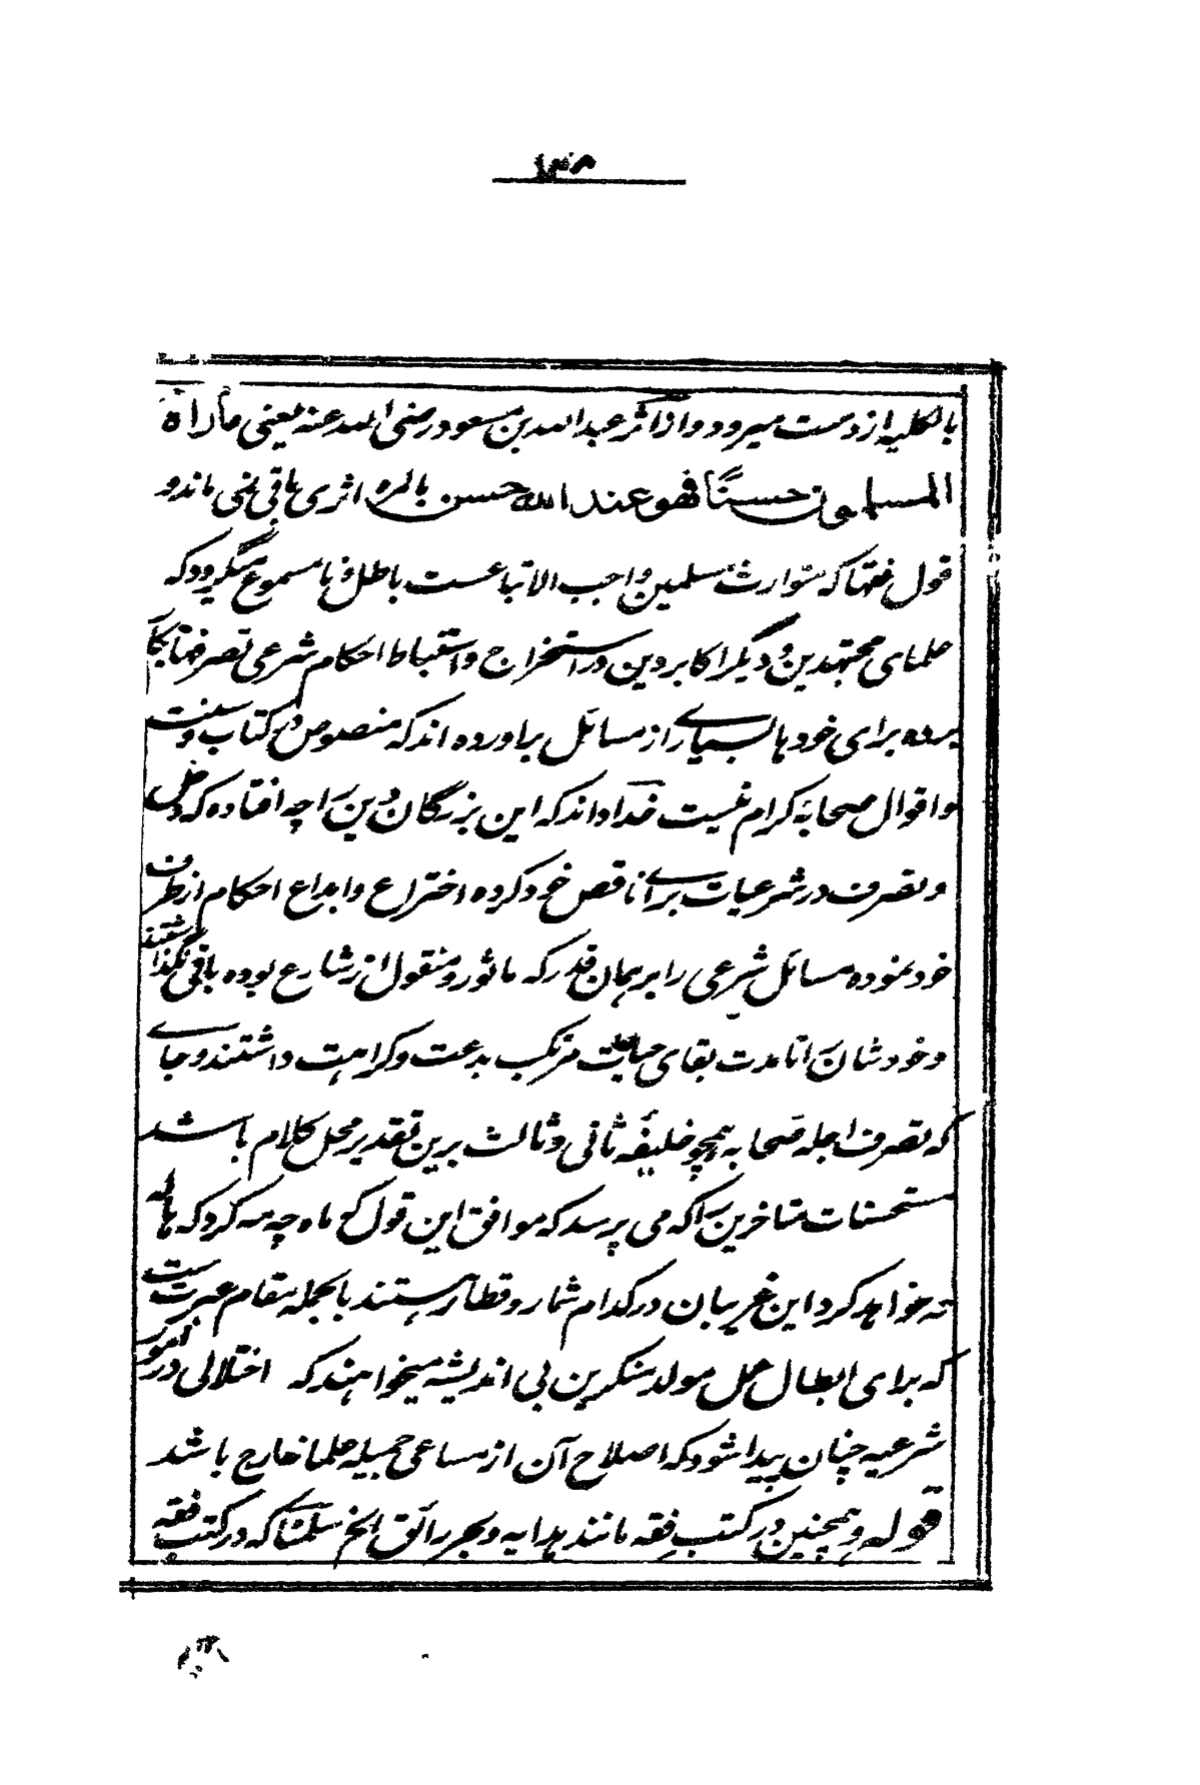 بالکلیه از دست میرود و از اثر عبدالله بن مسعود رضی الله عنه یعنی ما راٰه
المسلمون حسنًا فهو عند الله حسن بالمره اثری باقی نمی ماند و
قول فقها که متوارث مسلمین واجب الاتباعست باطل و نا مسموع میگردد که
علمای مجتهدین و دیگر اکابر دین در استخراج و استنباط احکام شرعی تصرفها بکار
برده برای خودها بسیاری از مسائل برآورده اند که منصوص در کتاب و سنت
و اقوال صحابهٔ کرام نیست خدا داند که این بزرگان دین را چه افتاده که دخل
و تصرف در شرعیات برای ناقص خود کرده اختراع و ابداع احکام از طرف
خود نموده مسائل شرعی را بر همان قدر که ماثور و منقول از شارع بوده باقی نگذاشتند
و خودشان را تا مدت بقای حیات مرتکب بدعت و کراهت داشتند و جای
که تصرف اجله صحابه همچو خلیفهٔ ثانی و ثالث برین تقدیر محل کلام باشد
مستحسنات متاخرین را که می پرسد که موافق این قول ع ماه چه مه کرد که باله
نه خواهد کرد این غریبان در کدام شمار و قطار هستند بالجمله مقام عبرت ست
که برای ابطال عمل مولد منکرین بی اندیشه میخواهند که اختلالی در امور
شرعیه چنان پیدا شود که اصلاح آن از مساعی جمیله علما خارج باشد
قوله و همچنین در کتب فقه مانند هدایه و بحر رائق الخ سلمنا که در کتب فقه